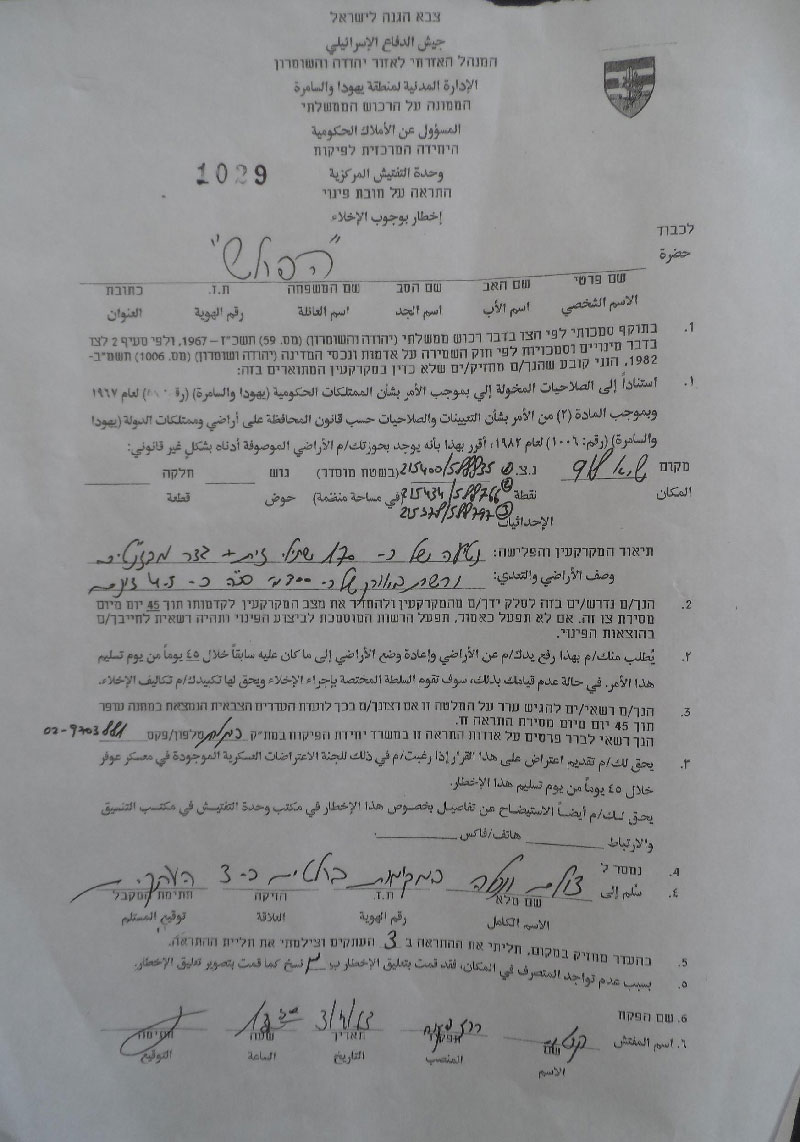 צבא הגנה לישראל
جيش الدفاع الإسرائيلي
המנהל האזרחי לאזור יהודה והשומרון
الإدارة المدنية لمنطقة يهودا والسامرة
הממונה על הרכוש הממשלתי
المسؤول عن الأملاك الحكومية
היחידה המרכזית לפיקוח
وحدة التفتيش المركزية
1029
התראה על חובת פינוי
إخطار بوجوب الإخلاء
לכבוד
حضرة
שם פרטי שם האב שם הסב שם המשפחה ת.ז. כתובת
الاسم الشخصي اسم الأب اسم الجد اسم العائلة رقم الهوية العنوان
1. בתוקף סמכותי לפי הצו בדבר רכוש ממשלתי (יהודה והשומרון) (מס. 59) תשכ"ז – 1967, ולפי סעיף 2 לצו
בדבר מינויים וסמכויות לפי חוק השמירה על אדמות ונכסי המדינה (יהודה ושומרון) (מס. 1006) תשמ"ב-
1982, הנני קובע שהנך/ם מחזיק/ים שלא כדין במקרקעין המתוארים בזה:
١. استناداً إلى الصلاحيات المخولة إلي بموجب الأمر بشأن الممتلكات الحكومية (يهودا والسامرة) لعام ١٩٦٧
وبموجب المادة (٢) من الأمر بشأن التعيينات والصلاحيات حسب قانون المحافظة على أراضي وممتلكات الدولة (يهودا
والسامرة) (رقم: ١٠٠٦) لعام ١٩٨٢، أقرر بهذا بأنه يوجد بحوزتك/م الأراضي الموصوفة أدناه بشكل غير قانوني:
מקום נ.צ. (בשטח מוסדר) גוש חלקה
المكان نقطة (في مساحة منظمة) حوض قطعة
الإحداثيات
תיאור המקרקעין והפלישה: נטיעה של כ- 170 שתילי זית + גדר
وصف الأراضي والتعدي:
2. הנך/ם נדרש/ים בזה לסלק ידך/ם מהמקרקעין ולהחזיר את מצב המקרקעין לקדמותו תוך 45 יום מיום
מסירת צו זה. אם לא תפעל כאמור, תפעל הרשות המוסמכת לביצוע הפינוי ותהיה רשאית לחייבך/ם
בהוצאות הפינוי.
٢. يُطلب منك/م بهذا رفع يدك/م عن الأراضي وإعادة وضع الأراضي إلى ما كان عليه سابقاً خلال ٤٥ يوماً من يوم تسليم
هذا الأمر. في حالة عدم قيامك بذلك، سوف تقوم السلطة المختصة بإجراء الإخلاء ويحق لها تكبيدك/م تكاليف الإخلاء.
3. הנך/ם רשאי/ים להגיש ערר על החלטה זו אם רצונך/ם בכך לועדת העררים הצבאית הנמצאת במחנה עופר
תוך 45 יום מיום מסירת התראה זו.
הנך רשאי לברר פרטים על אודות התראה זו במשרד יחידת הפיקוח במת"ק טלפון/פקס 02-9703881
٣. يحق لك/م تقديم اعتراض على هذا القرار إذا رغبت/م في ذلك للجنة الاعتراضات العسكرية الموجودة في معسكر عوفر
خلال ٤٥ يوماً من يوم تسليم هذا الإخطار.
يحق لك/م أيضاً الاستيضاح عن تفاصيل بخصوص هذا الإخطار في مكتب وحدة التفتيش في مكتب التنسيق
والارتباط هاتف/فاكس
4. נמסר ל
٤. سُلم إلى
שם מלא ת.ז. הזיקה חתימת המקבל
الاسم الكامل رقم الهوية العلاقة توقيع المستلم
5. בהעדר מחזיק במקום, תליתי את ההתראה ב 3 העתקים וצילמתי את תליית ההתראה.
٥. بسبب عدم تواجد المتصرف في المكان، فقد قمت بتعليق الإخطار ب ٣ نسخ كما قمت بتصوير تعليق الإخطار.
6. שם הפקח
٦. اسم المفتش
שם תפקיד תאריך שעה חתימה
الاسم المنصب التاريخ الساعة التوقيع